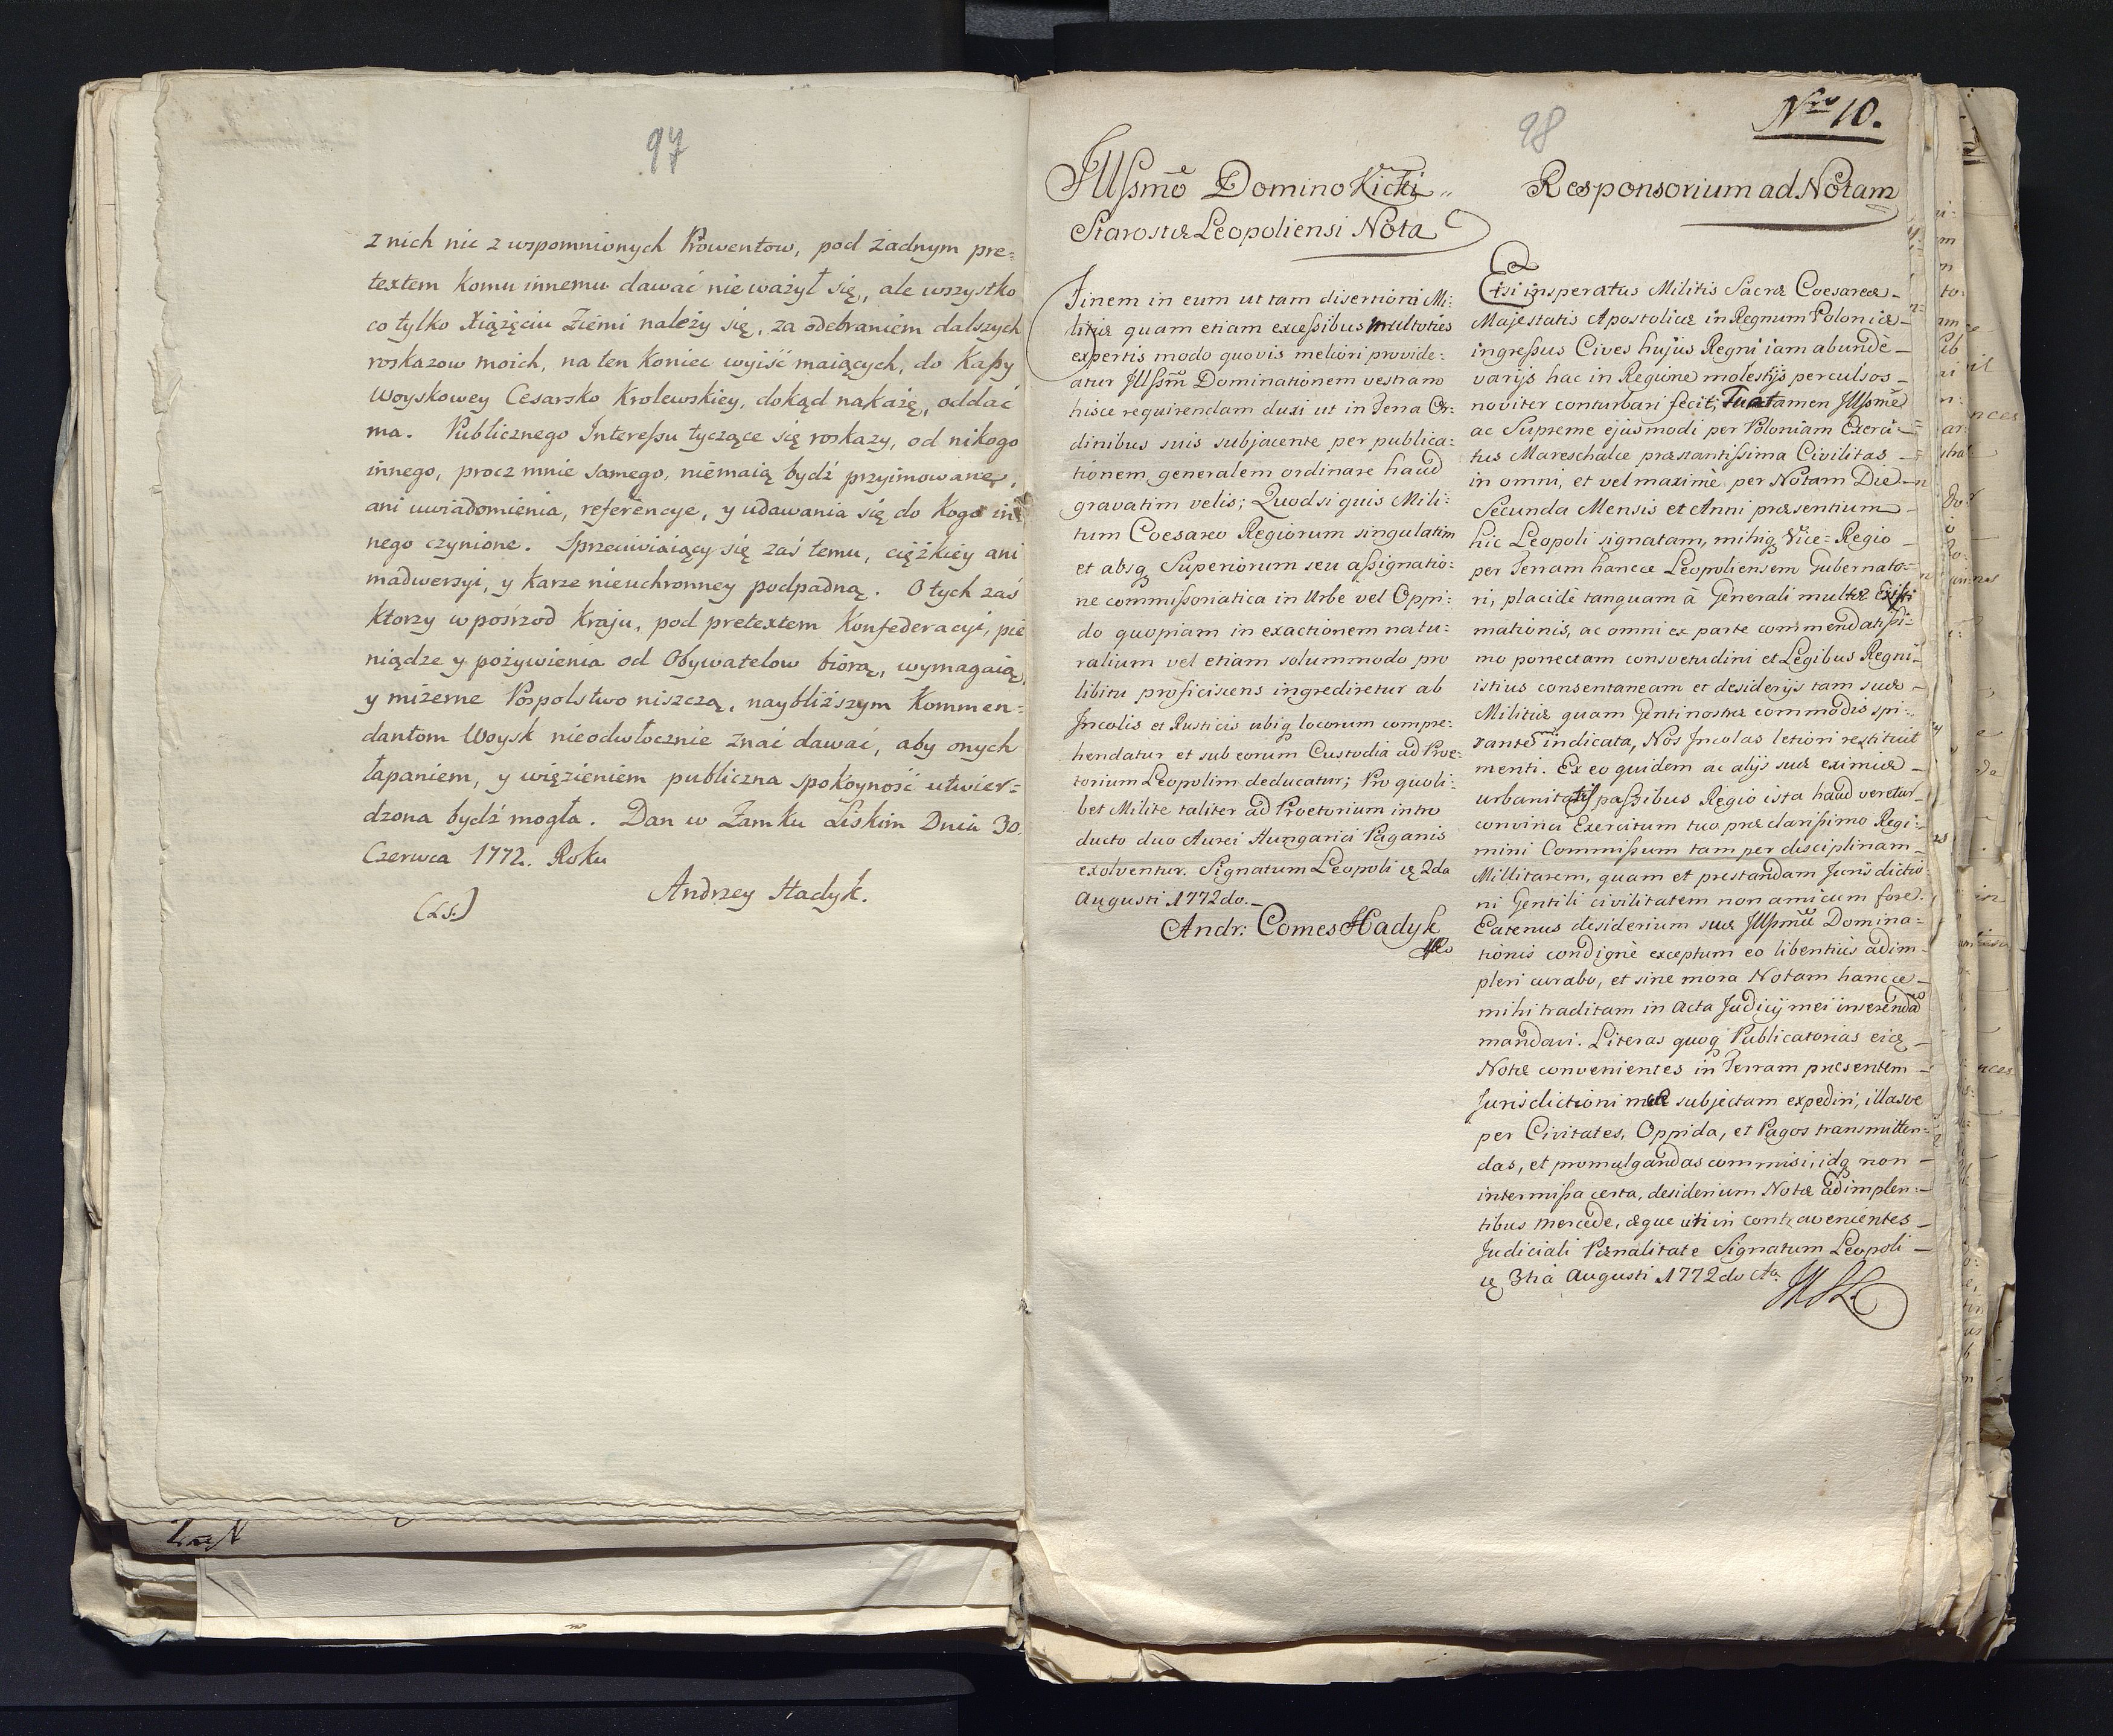 97
z nich nic z wspomnionych Prowentow, pod żadnym pre=
textem komu innemu dawać nie ważył się, ale wszystko
co tylko Xiążęciu Ziemi należy się, za odebraniem dalszych
roskazow moich, na ten koniec wyiść maiących, do Kaſsy
Woyskowey Cesarsko Krolewskiey, dokąd nakażę, oddać
ma. Publicznego Intereſsu tyczące się roskazy, od nikogo
innego, procz mnie samego, niemaią bydź przyimowane,
ani uwiadomienia, referencye, y udawania się do Kogo in=
nego czynione. Sprzeciwiaiący się zaś temu, ciężkiey ani
madwersyi, y karze nieuchronney podpadną. O tych zaś
ktorzy wpośrzod Kraju, pod pretextem Konfederacyi, pie
niądze y pożywienia od Obywatelow biorą, wymagaią,
y mizerne Pospolstwo niszczą, naybliższym Kommen=
dantom Woysk nieodwłocznie znać dawać, aby onych
łapaniem, y więzieniem publiczna spokoyność utwier=
dzona bydź mogła. Dan w Zamku Liskim Dnia 30.
Czerwca 1772. Roku
(L.S.) Andrzey Hadyk.
98
Nro 10.
Jllſsmo Domino Kicki
Starostæ Leopoliensi Nota
Finem in eum ut tam disertioni Mi=
litiæ quam etiam exceſsibus multoties
expertis modo quovis meliori provide=
atur Jllſsm̃ Dominationem vestram
hisce requirendam duxi ut in Terra Or=
dinibus suis subjacente per publica=
tionem generalem ordinare haud
gravatim velis; Quod si quis Mili=
tum Coesareo Regiorum singulatim
et absq Superiorum seu aſsignatio=
ne commiſsoriatica in Urbe vel Oppi=
do quopiam in exactionem natu=
ralium vel etiam solummodo pro
libitu proficiscens ingrediretur ab
Jncolis et Rusticis ubiq locorum compre=
hendatur et sub eorum Custodia ad Proe=
torium Leopolim deducatur; Pro quoli=
bet Milite taliter ad Proetorium intro
ducto duo Aurei Hungarici Paganis
exolventur. Signatum Leopoli ię 2da
Augusti 1772do.
Andr: Comes Hadyk
Responsorium ad Notam
Etsi insperatus Militis Sacræ Coesareæ
Majestatis Apostolicæ in Regnum Poloniæ
ingreſsus Cives hujus Regni iam abundè
varijs hac in Regione molestijs perculsos
noviter conturbari fecit, Tua tamen Jllſsme
ac Supreme ejusmodi per Poloniam Exerci=
tus Mareschalce præstantiſsima Civilitas
in omni, et vel maximè per Notam Die
Secunda Mensis et Anni præsentium
hic Leopoli signatam, mihiq Vice=Regio
per Terram hancce Leopoliensem Gubernato=
ri, placidè tanquam à Generali multæ Existi
mationis, ac omni ex parte commendatiſsi=
mo porrectam consvetudini et Legibus Regni
istius consentaneam et desiderijs tam suæ
Militiæ quam Genti nostræ commodis spi=
rante indicata, Nos Jncolas letiori restituit
menti. Ex eo quidem ac alijs suæ eximiæ
urbanitatis paſsibus Regio ista haud veretur
convinci Exercitum tuo præclariſsimo Regi=
mini Commiſsum tam per disciplinam
Militarem, quam et prestandam Jurisdictio
ni Gentili civilitatem non amicum fore.
Eatenus desiderium suæ Jllſsmæ Domina=
tionis condignè exceptum eo libentiùs adim=
pleri curabo, et sine mora Notam hancce
mihi traditam in Acta Judicij mei inserendã
mandavi. Literas quoq Publicatorias eię
Notæ convenientes in Terram præsentem
Jurisdictioni meæ subjectam expediri, illasve
per Civitates, Oppida, et Pagos transmitten=
das, et promulgandas commisi, idq non
intermiſsa certa, desiderium Notæ adimplen=
tibus mercede, æque uti in contravenientes
Judiciali Pænalitate Signatum Leopoli
ię 3tia Augusti 1772do Ao.